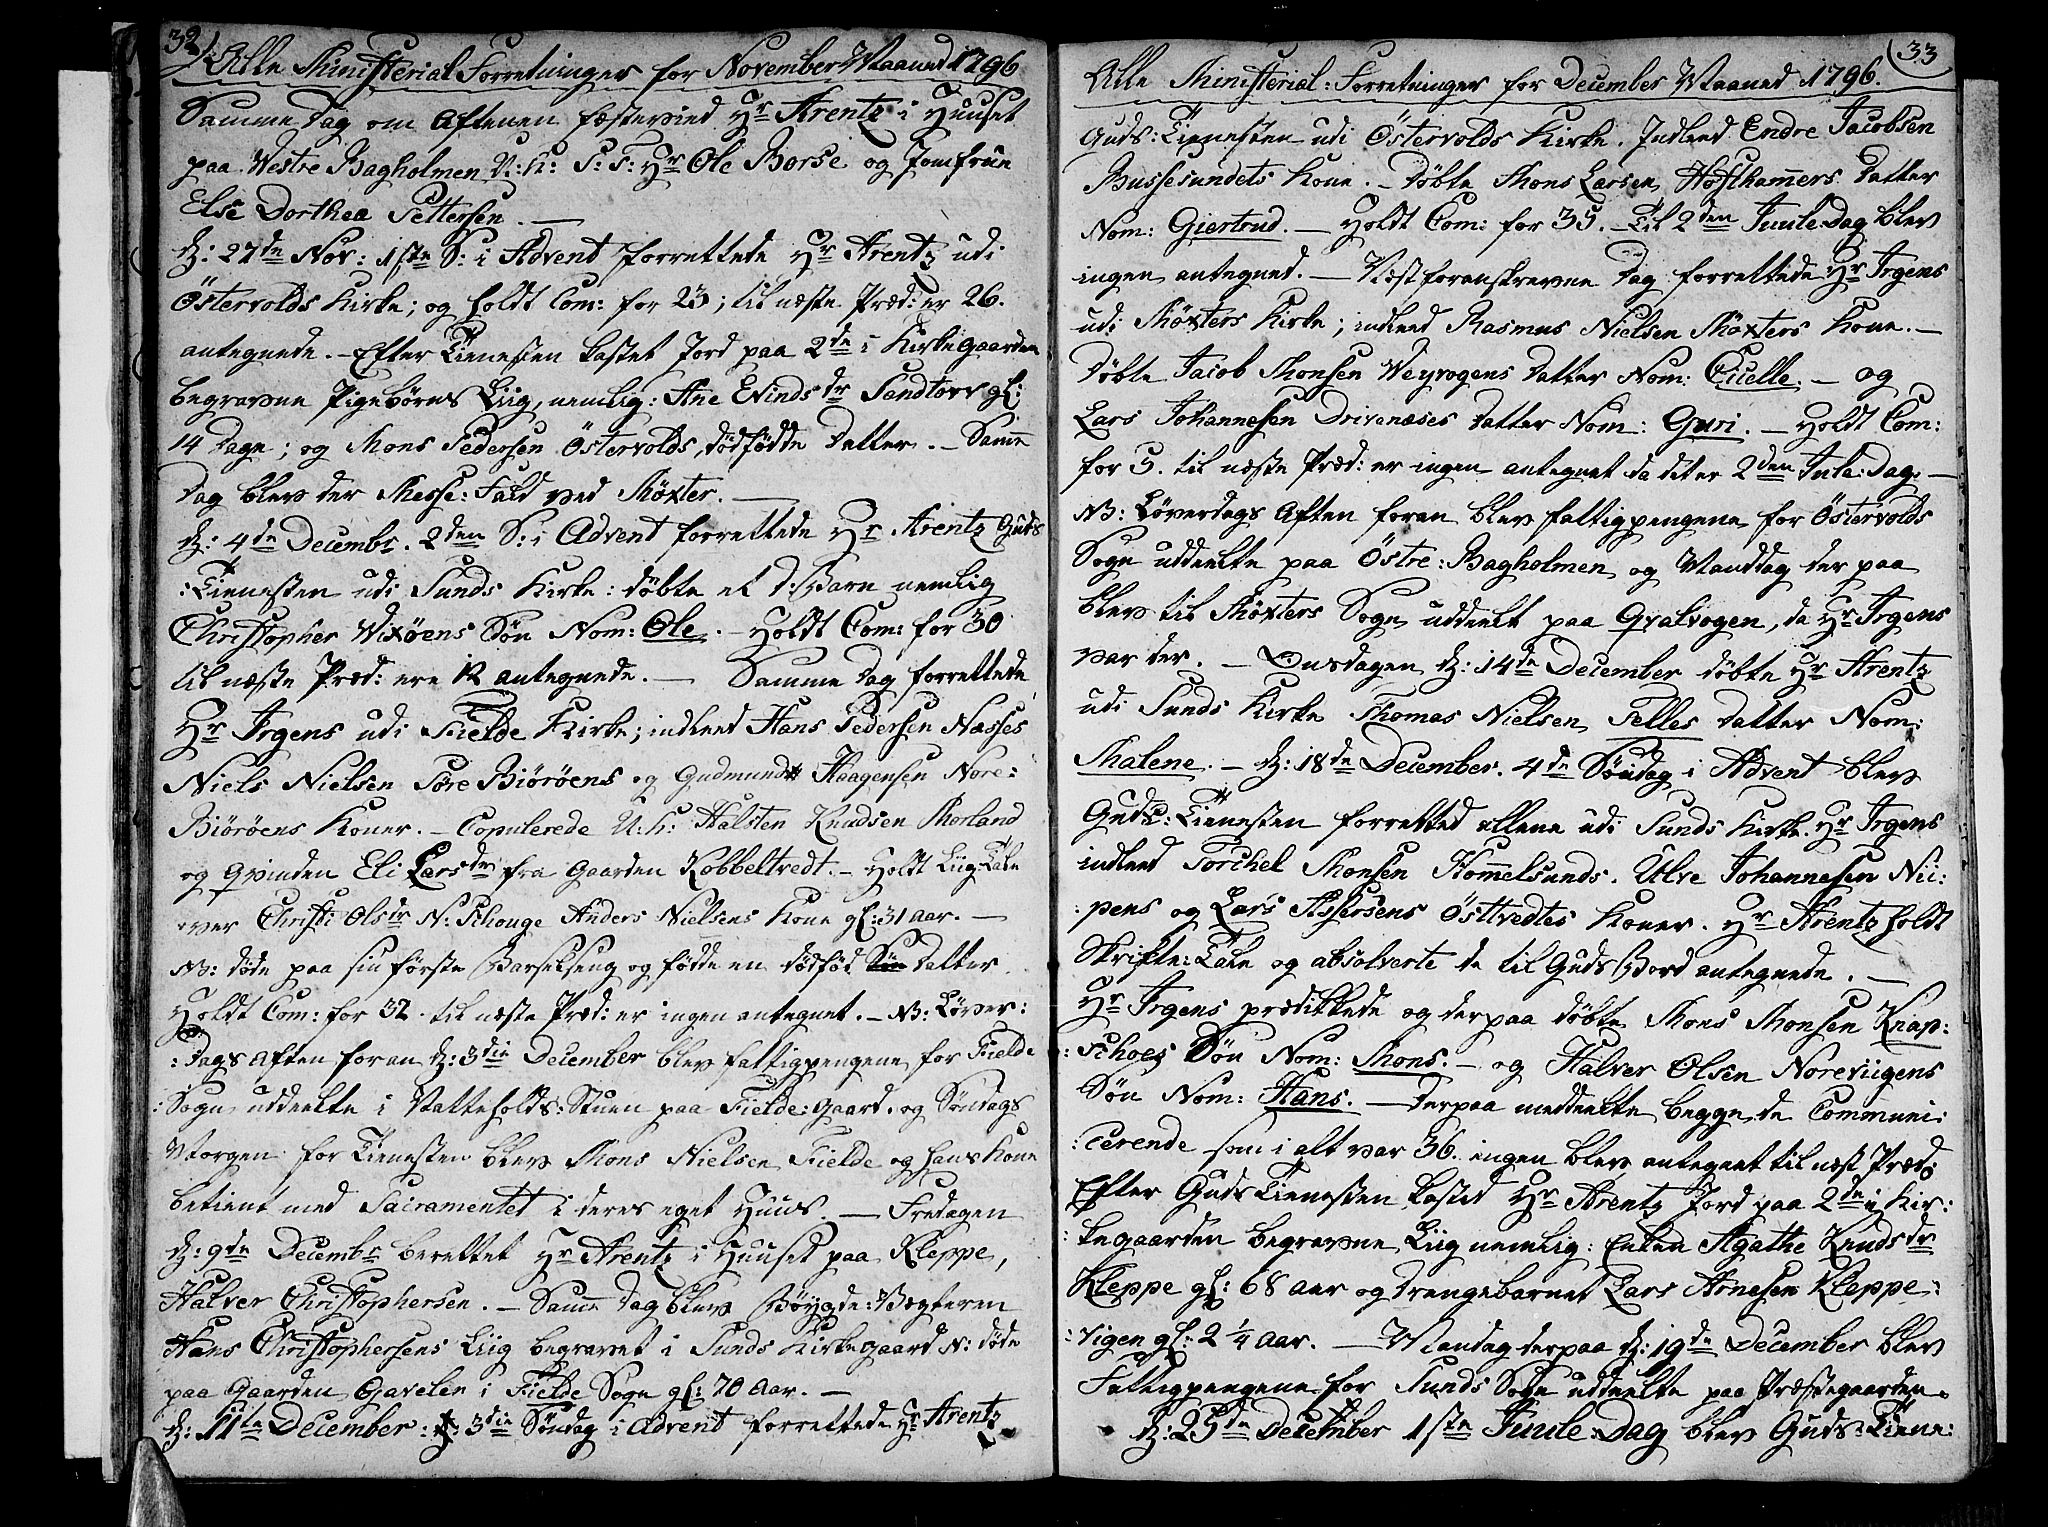 32)
Alle Ministerial Forretninger for November Maaned 1796
Samme Dag om Aftenen fæstevied Hr Arentz i Huuset
paa Westre Bagholmen U: K: S: T: Hr Ole Borse og Jomfrue
Else Dorthea Pettersen. —
D: 27de Nov: 1ste S: i Advent forrettede Hr Arentz udi
Östervolds Kirke; og holdt Com: for 23; til næste Præd: er 26.
antegnede. — Efter Tienesten kastet Jord paa 2de i Kirkegaarden
begravne Pigebörns Liig, nemlig: Ane Evindsdr Sendtorv gl:
14 Dage; og Mons Pedersen Östervolds dödfödde Datter. — Samme
Dag blev der Messe: Fald ved Möxter. —
D: 4de Decembr. 2den S: i Advent forrettede Hr Arentz Guds
:Tienesten udi Sunds Kirke: döbte et D: Barn nemlig
Christopher Wixöens Sön Nom: Ole. — Holdt Com: for 30
til næste Præd: ere 12 antegnede. — Samme Dag forrettede
Hr Irgens udi Fielde Kirke; indleed Hans Pedersen Næsses
Niels Nielsen Söre Biöröens og Gudmund Haagensen Nore:
Biöröens Koner. — Copulerede U: K: Halsten Knudsen Morland
og Qvinden Eli Larsdr fra Gaarden Kobbeltvedt. — Holdt Liig Tale
over Christi Olsdr N: Schouge Anders Nielsens Kone gl: 31 Aar. —
NB: döde paa sin förste Barselseng og födde en dödfód Datter.
Holdt Com: for 32. til næste Præd: er ingen antegnet. — NB: Löver:
:Dags Aften foran D: 3die December blev fattigpengene for Fielde
Sogn uddeelte i Vatteholds: Stuen paa Fielde: Gaard. og Söndags
Morgen for Tienesten blev Mons Nielsen Fielde og hans Kone
betient med Sacramentet i deres eget Huus. — Fredagen
D: 9de Decembr berettet Hr Arentz i Huuset paa Kleppe,
Halver Christophersen. — Samme Dag blev Böigde: Vægteren
Hans Christophersens Liig begravet i Sunds Kirkegaard N: döde
paa Gaarden Gavelen i Fielde Sogn gl: 70 Aar. —
D: 11te December: 3die Söndag i Advent forrettede Hr Arentz
(33
Alle Ministerial: Forretninger for December Maaned 1796.
Guds: Tienesten udi Östervolds Kirke. Indleed Endre Jacobsen
Bussesundets Kone. — Döbte Mons Larsen Hofthamers Datter
Nom: Giertrud. — Holdt Com: for 35. — Til 2den Juule: Dag blev
ingen antegned. — Næstforanskrevne Dag forrettede Hr Irgens
udi Möxters Kirke; indleed Rasmus Nielsen Möxters Kone. —
Döbte Jacob Monsen Weyvogens Datter Nom: Cicelle. — og
Lars Johannesen Drivenæses Datter Nom: Guri. — Holdt Com:
for 5. til næste Præd: er ingen antegnet da det er 2den Jule: Dag. —
NB: Löverdags Aften foran blev fattigpengene for Östervolds
Sogn uddeelte paa Östre: Bagholmen og Manddag der paa
blev til Möxters Sogn uddeelt paa Qvalvogen, da Hr Irgens
var der. — Onsdagen D: 14de December döbte Hr Arentz
udi Sunds Kirke Thomas Nielsen Telles Datter Nom:
Malene. — D: 18de December. 4de Söndag i Advent blev
Guds: Tienesten forretted allene udi Sunds Kirke. Hr Irgens
indleed Torchel Monsen Hommelsunds. Ulve Johannesen Nii:
:pens og Lars Assersens Östtvedtes Koner. Hr Arentz holdt
Skrifte: Tale og absolverte de til Guds Bord antegnede. —
Hr Irgens prædikkede og derpaa döbte Mons Monsen Knap:
:schoes Sön Nom: Mons. — og Halver Olsen Noreviigens
Sön Nom: Hans. — Derpaa meddeelte begge de Communi:
:cerende som i alt var 36. ingen blev antegnet til næst Præd:
Efter Guds Tienesten kasted Hr Arentz Jord paa 2de i Kir:
:kegaarden begravne Liig nemlig: Enken Agathe Knudsdr
Kleppe gl: 68 Aar og Drengebarnet Lars Arnesen Kleppe:
:vigen gl: 2 1/4 Aar. — Mandag derpaa D: 19de December blev
Fattigpengene for Sunds Sogn uddeelte paa Præstegaarden.
D: 25de December 1ste Juule: Dag blev Guds: Tiene: